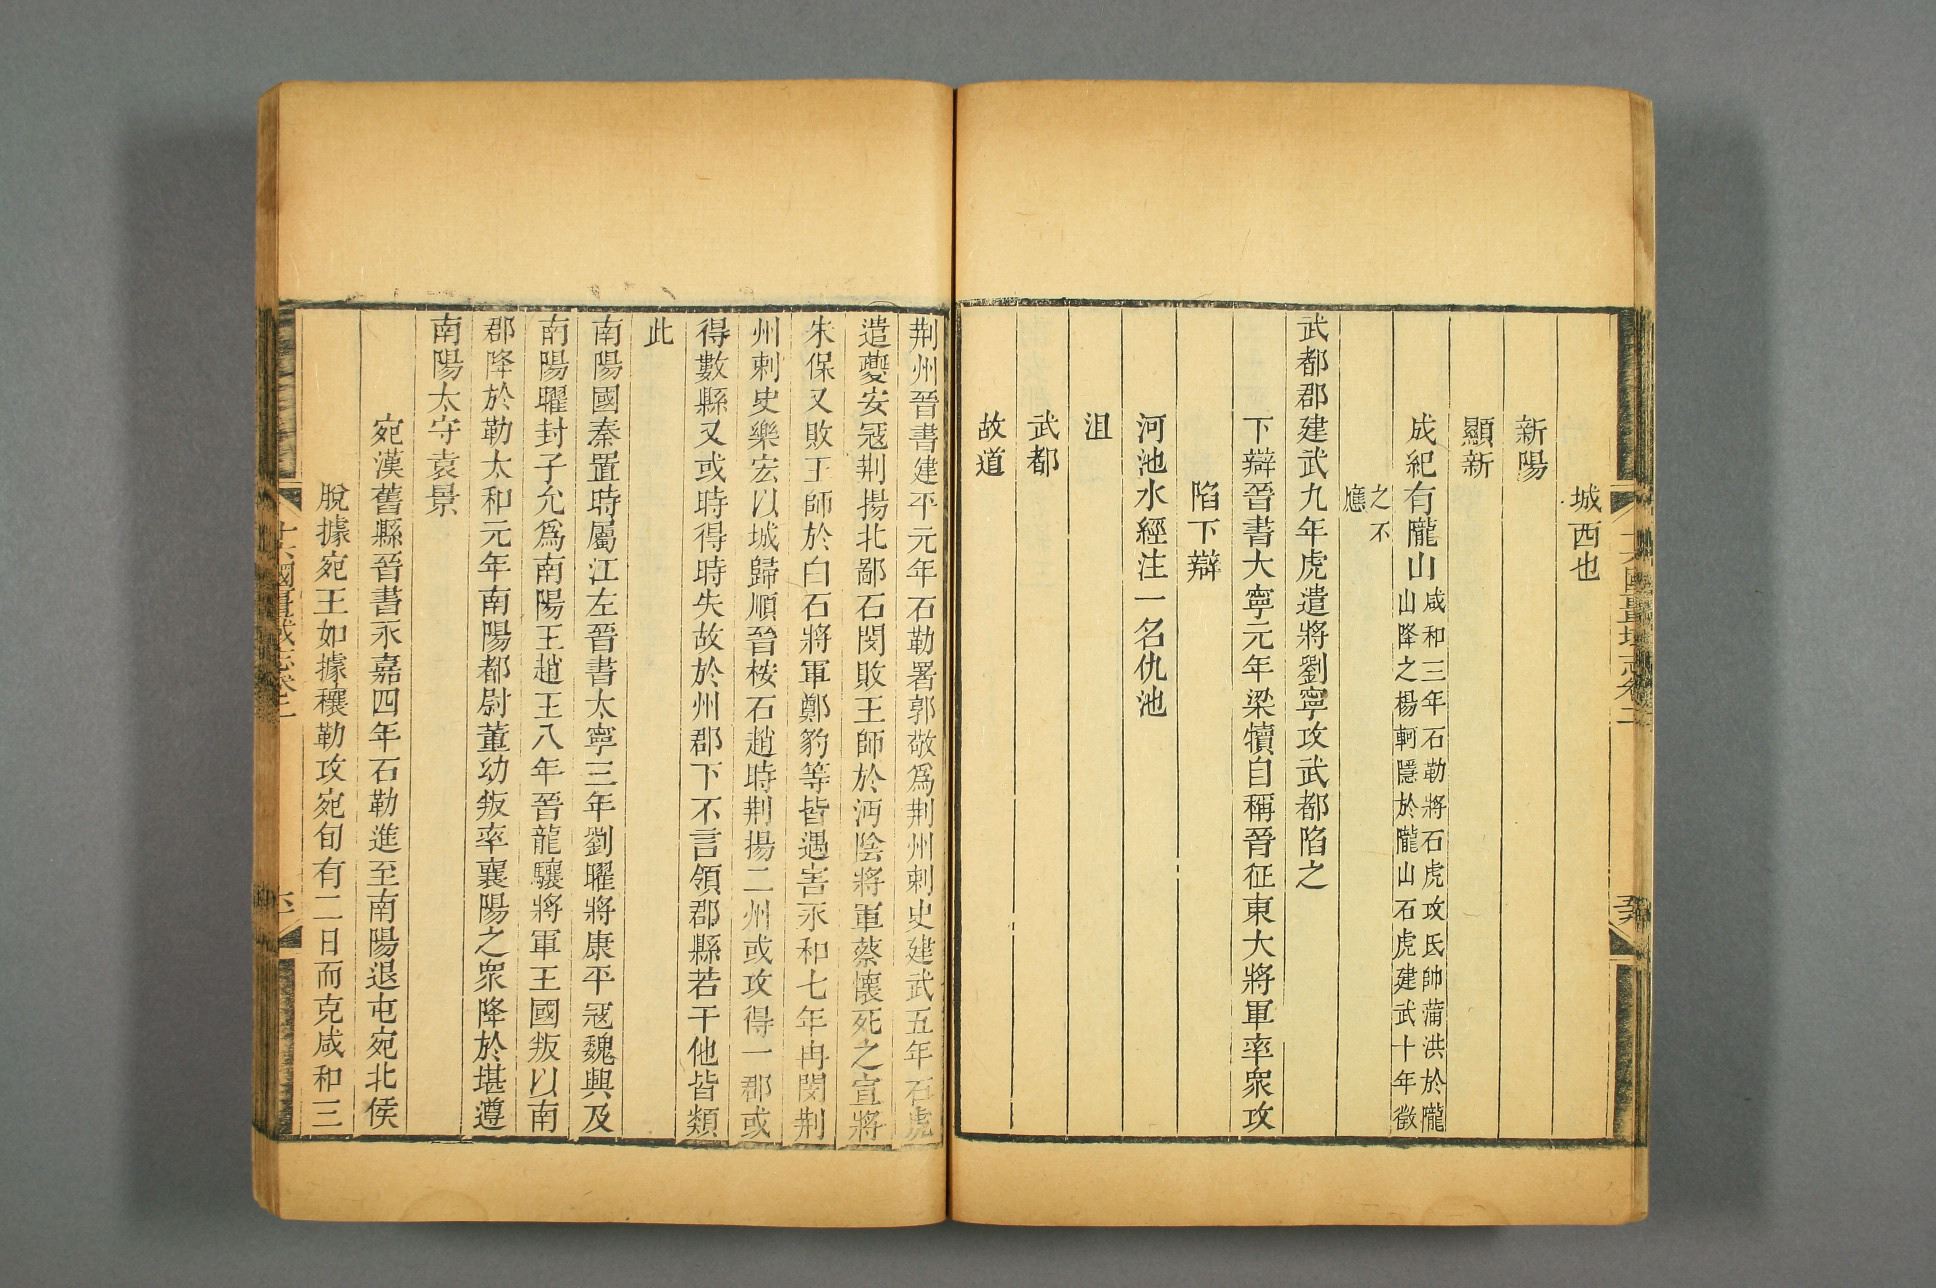 城西也
新陽
顯新
成紀有隴山咸和三年石勒將石虎攻氐帥蒲洪於隴
山降之楊軻隱於隴山石虎建武十年徵
之不
應
武都郡建武九年虎遣將劉寧攻武都陷之
下辯晉書大寧元年梁犢自稱晉征東大將軍率衆攻
陷下辯
河池水經注一名仇池
沮
武都
故道
荆州晉書建平元年石勒署郭敬爲荆州刺史建武五年石虎
遣夔安寇荆揚北鄙石閔敗王師於沔陰將軍蔡懷死之宣將
朱保又敗王師於白石將軍鄭豹等皆遇害永和七年冉閔荆
州刺史樂宏以城歸順晉桉石趙時荆揚二州或攻得一郡或
得數縣又或時得時失故於州郡下不言領郡縣若干他皆類
此
南陽國秦置時屬江左晉書太寧三年劉曜將康平寇魏興及
南陽曜封子允爲南陽王趙王八年晉龍驤將軍王國叛以南
郡降於勒太和元年南陽都尉董幼叛率襄陽之衆降於堪遵
南陽太守袁景
宛漢舊縣晉書永嘉四年石勒進至南陽退屯宛北侯
脫據宛王如據穰勒攻宛旬有二日而克咸和三
十六國疆域志卷二
六
十六國疆域志卷二